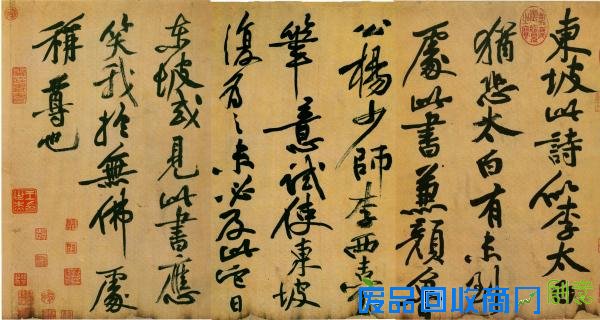 東坡此詩似李太白
猶恐太白有未到
處此書兼顏魯
公楊少師李西臺
筆意試使東坡
復為之未必及此它日
東坡或見此書應
笑我於無佛處
稱尊也
废品回收商网